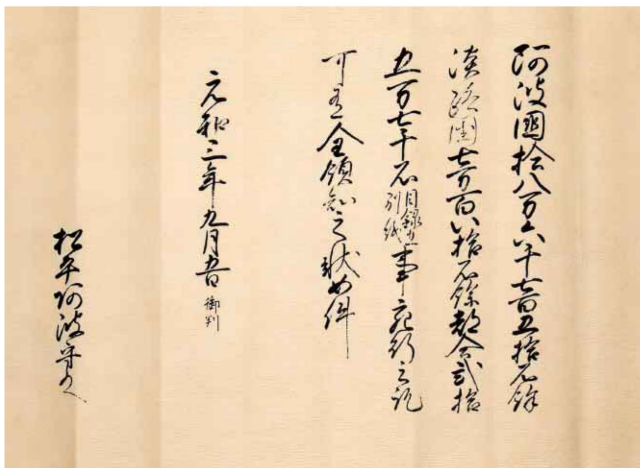 阿波國拾八万六千七百五拾石餘
淡路國七万百八拾石餘都合弐拾
五万七千石目録在別紙事宛行之訖
可有全領知之状如件
元和三年九月五日 御判
松平阿波守とのへ